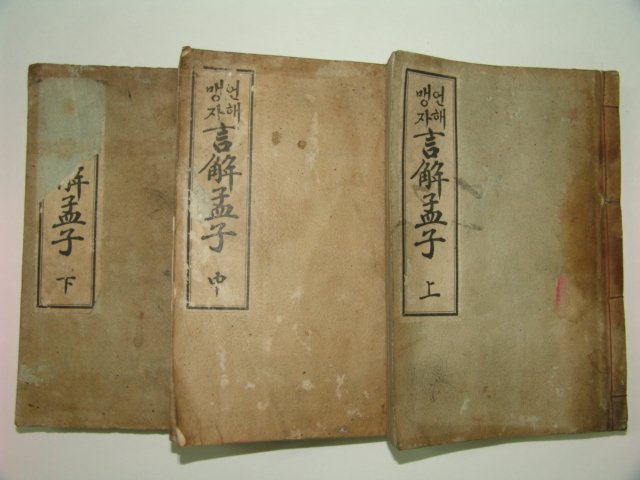 언해
맹자
言解孟子
上
언해
맹자
言解孟子
中
解孟子
下